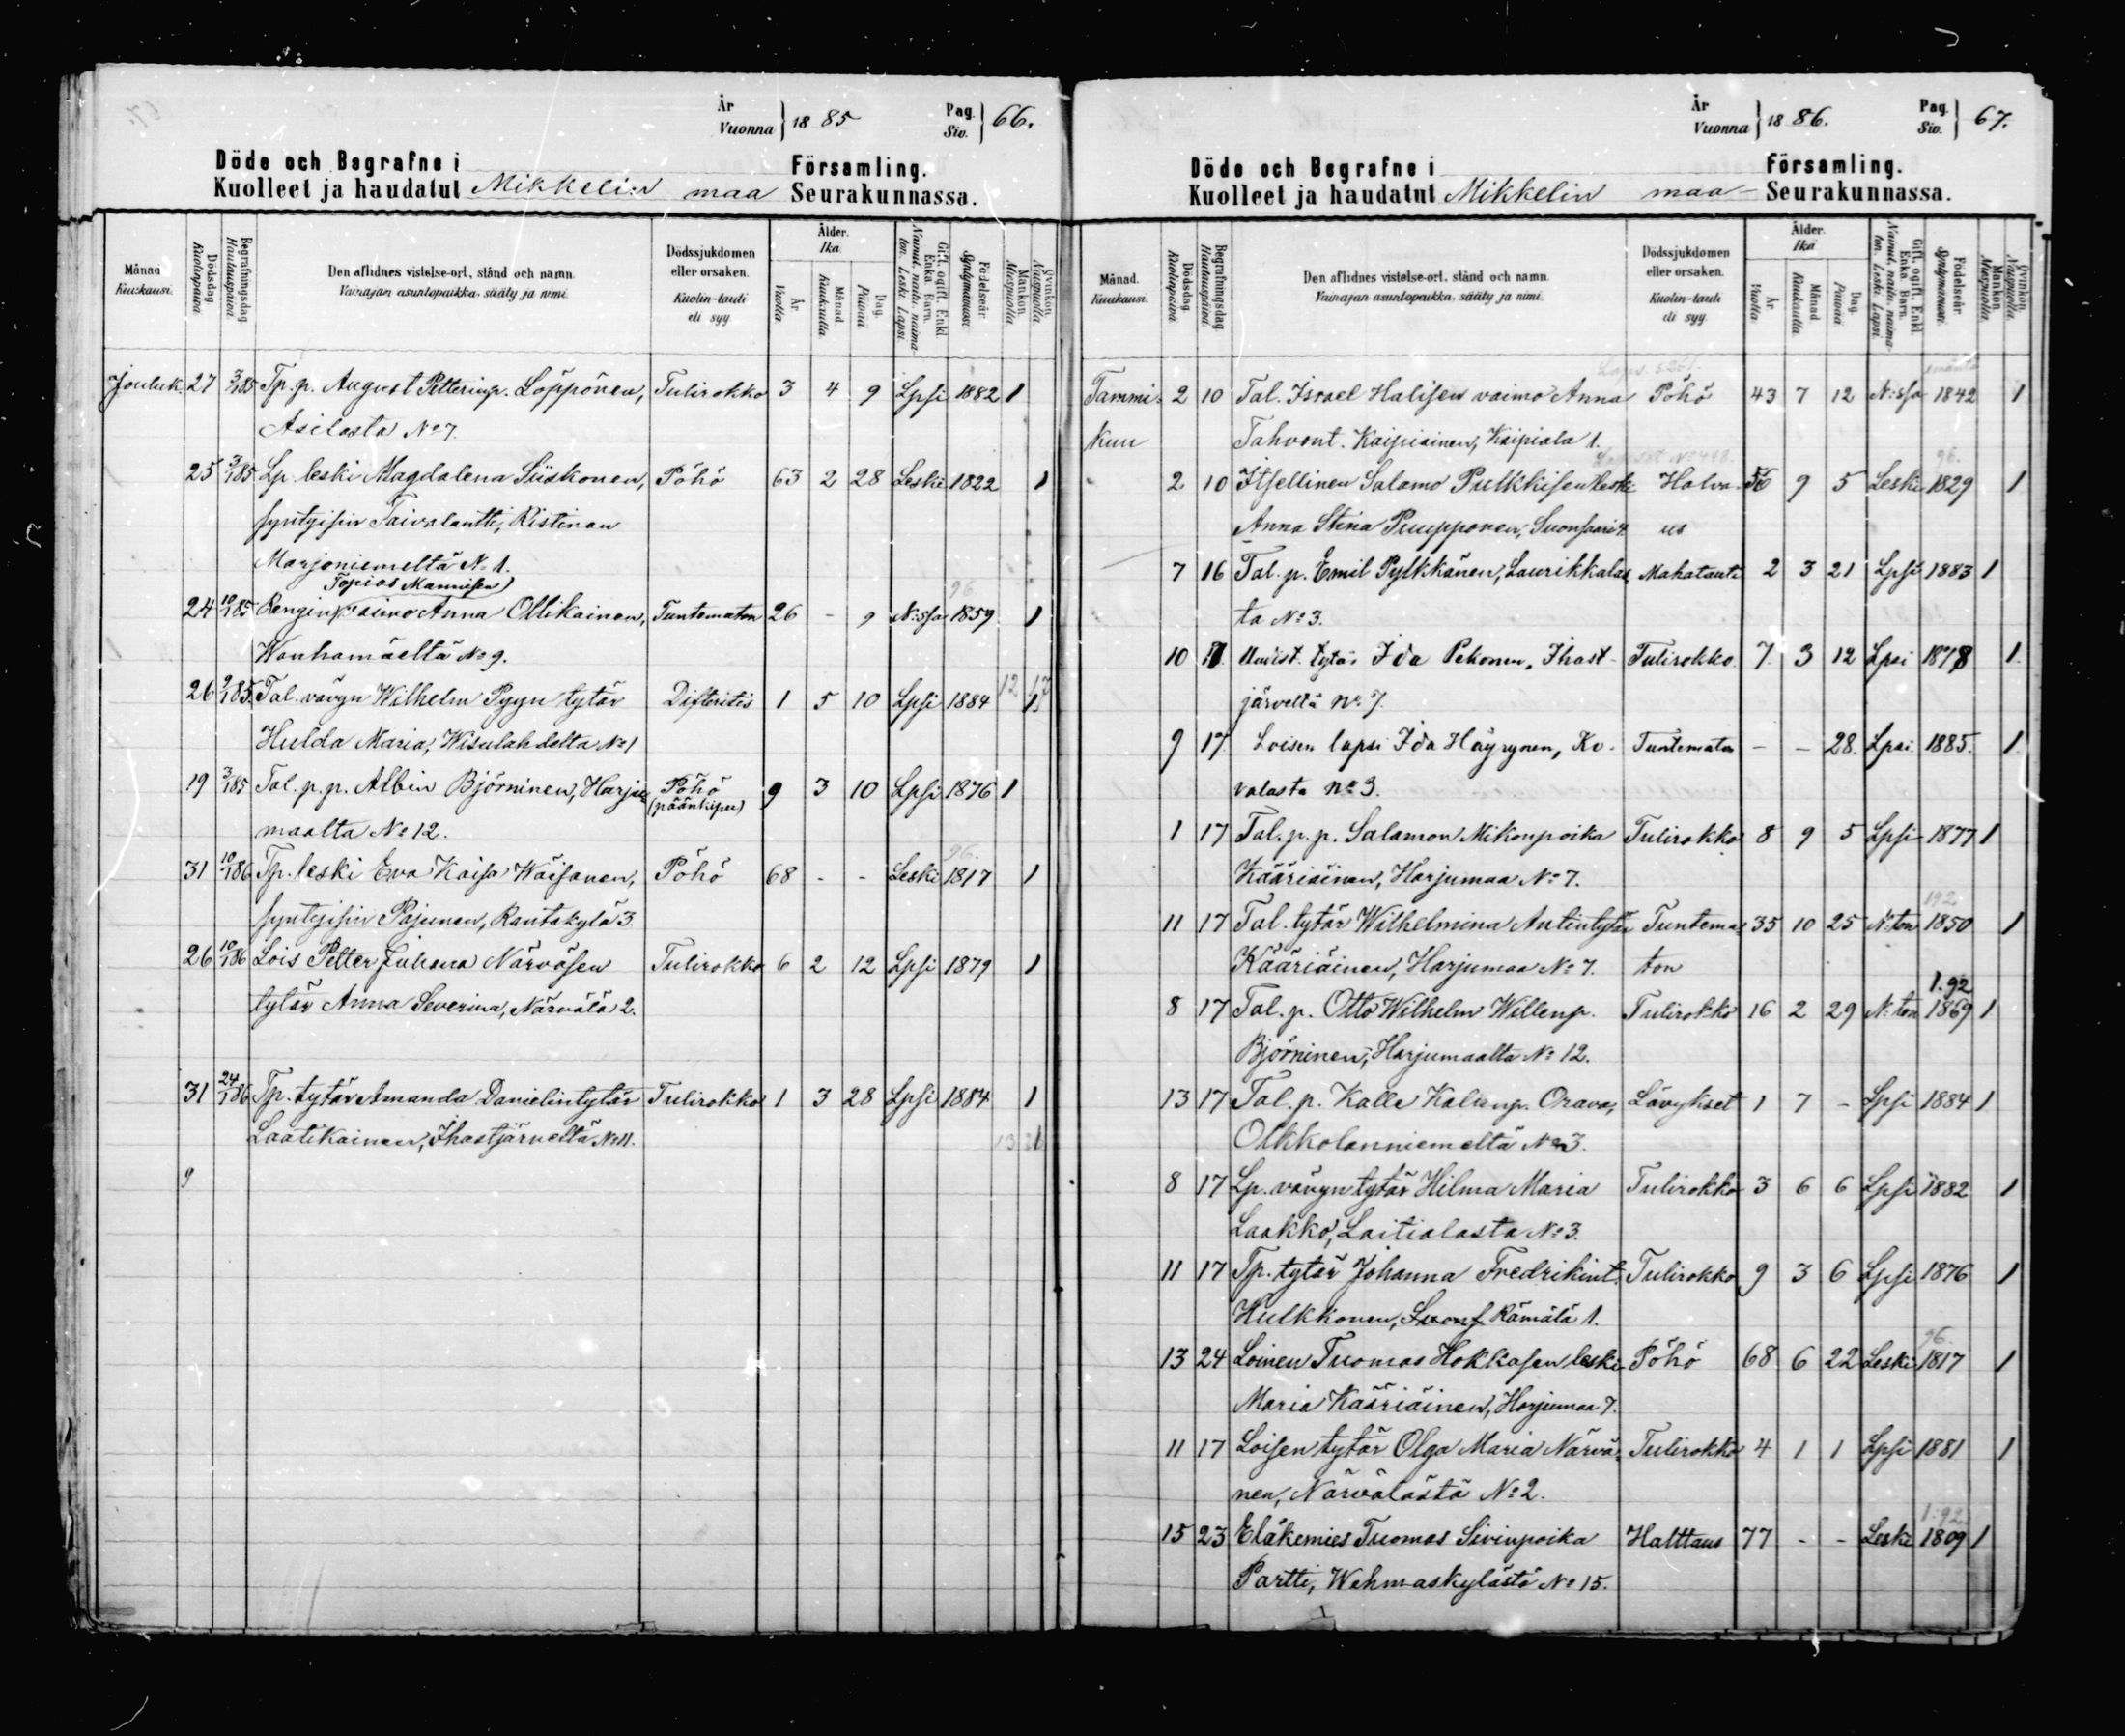 År
Vuonna } 18 85
Pag.
Siv. } 66.
Döde och Begrafne i Församling.
Kuolleet ja haudatut Mikkelin maa Seurakunnassa.
Månad
Kuukausi.
Dödsdag
Kuolinpäivä
Begrafningsdag
Hautauspäivä
Den aflidnes vistelse-ort, stånd och namn.
Vainajan asuntopaikka, sääty ja nimi.
Dödssjukdomen
eller orsaken.
Kuolin-tauti
eli syy
Ålder.
Ikä
År.
Vuotta
Månad
Kuukautta
Dag.
Päivää
Gift. ogift. Enkl. Enka. Barn.
Nainut. naitu. naimaton. Leski. Lapsi.
Födelseår
Syntymävuosi
Mankön
Miespuolia
Qvinkön
Naispuolia
Jouluk. 27 3/1 85 Tp. p. August Petterinp. Löppönen, Tulirokko 3 4 9 Lpsi 1882 1
Asilasta No 7.
25 3/1 85 Lp. leski Magdalena Siiskonen, Pöhö 63 2 28 Leski 1822 1
syntyisin Taivalantti, Ristinan
Marjoniemeltä No 1.
Topias Mannisen
24 10/1 85 Rengin vaimo Anna Ollikainen, Tuntematon 26 - 9 N:ssa 1859 1
Wanhamäeltä No 9.
26 2/1 85 Tal. vävyn Wilhelm Pyyn tytär Difteritis 1 5 10 Lpsi 1884 1
Hulda Maria, Wisulahdelta No 1
19 3/1 85 Tal. p. p. Albin Björninen, Harju Pöhö 9 3 10 Lpsi 1876 1
(päänkipu)
maalta No 12.
31 10/1 86 Tp. leski Ewa Kaisa Wäisänen, Pöhö 68 - - Leski 1817 1
syntyisin Pajunen, Rantakylä 3.
26 10/1 86 Lois Petter Juhana Närväsen Tulirokko 6 2 12 Lpsi 1879 1
tytär Anna Severina, Närvälä 2.
31 24/1 86 Tp. tytär Amanda Danielintytär Tulirokko 1 3 28 Lpsi 1884 1
Laatikainen, Ihastjärveltä No 11.
9
År
Vuonna } 18 86.
Pag.
Siv. } 67.
Döde och Begrafne i Församling.
Kuolleet ja haudatut Mikkelin maa Seurakunnassa.
Månad.
Kuukausi.
Dödsdag.
Kuolinpäivä
Begrafningsdag
Hautauspäivä
Den aflidnes vistelse-ort. stånd och namn.
Vainajan asuntopaikka. sääty ja nimi.
Dödssjukdomen
eller orsaken.
Kuolin-tauti
eli syy
Ålder.
Ikä
År
Vuotta
Månad
Kuukautta
Dag.
Päivää
Gift. ogift. Enkl. Enka. Barn.
Nainut. naitu. naimaton. Leski. Lapsi.
Födelseår
Syntymävuosi
Mankön
Miespuolia.
Qvinkön
Naispuolia
Tammi- 2 10 Tal. Israel Halisen vaimo Anna Pöhö 43 7 12 N:ssa 1842 1
kuu Tahvont. Kaipiainen, Kaipiala 1.
2 10 Itsellinen Salamo Pulkkisen leski Halva- 56 9 5 Leski 1829 1
Anna Stina Puupponen, Suonsaari 4. us
7 16 Tal. p. Emil Pylkkänen, Laurikkalas Mahatauti 2 3 21 Lpsi 1883 1
ta No 3.
10 17 Uudist. tytär Ida Pekonen, Ihast- Tulirokko 7 3 12 Lpsi 1878 1.
järveltä No 7.
9 17. Loisen lapsi Ida Häyrynen, Ko- Tuntematon - - 28. Lpsi 1885. 1.
valasta No 3.
1 17 Tal. p. p. Salamon Mikonpoika Tulirokko 8 9 5 Lpsi 1877 1
Kääriäinen, Harjumaa No 7.
192
11 17 Tal. tytär Wilhelmina Antintytär Tuntema- 35 10 25 N:ton 1850 1
Kääriäinen, Harjumaa No 7. ton
1.92
8 17 Tal. p. Otto Wilhelm Willenp. Tulirokko 16 2 29 N:ton 1869 1
Björninen, Harjumaalta No 12.
13 17 Tal. p. Kalle Kalenp. Orava, Lävykset 1 7 - Lpsi 1884 1
Olkkolanniemeltä No 3.
8 17 Lp. vävyn tytär Hilma Maria Tulirokko 3 6 6 Lpsi 1882 1
Laakko, Laitialasta No 3.
11 17 Tp. tytär Johanna Fredrikint. Tulirokko 9 3 6 Lpsi 1876 1
Hulkkonen, Suons Rämälä 1.
96.
13 24 Loinen Tuomas Hokkasen leski Pöhö 68 6 22 Leski 1817 1
Maria Kääriäinen, Harjumaa 7.
11 17 Loisen tytär Olga Maria Närvä- Tulirokko 4 1 1 Lpsi 1881 1
nen, Närvälästä No 2.
1.92
15 23 Eläkemies Tuomas Sivinpoika Halttaus 77 - - Leski 1809 1
Partti, Wehmaskylästä No 15.